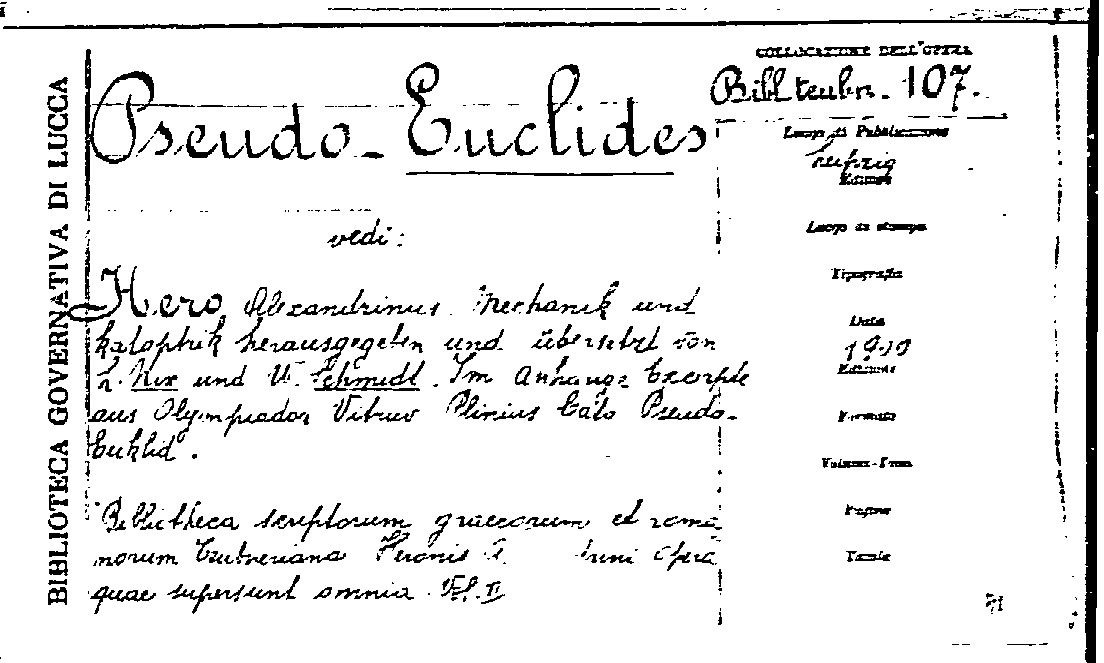 BIBLIOTECA GOVERNATIVA DI LUCCA
COLLOCAZIONE DELL'OPERA
Bibl. teubn. 107.
Pseudo-Euclides
Luogo di Pubblicazione
Leipzig
vedi:
Luogo di stampa
Tipografia
Hero Alexandrinus Mechanik und
Katoptrik herausgegeben und übersetzt von
L. Nix und W. Schmidt. Im Anhange Excerpte
aus Olympiodor Vitruv Plinius Cato Pseudo-
Euklid.
Data
1900
Formato
Pagine
Tavole
Bibliotheca scriptorum graecorum et roma
norum Teubneriana Heronis opera
quae supersunt omnia Vol. II